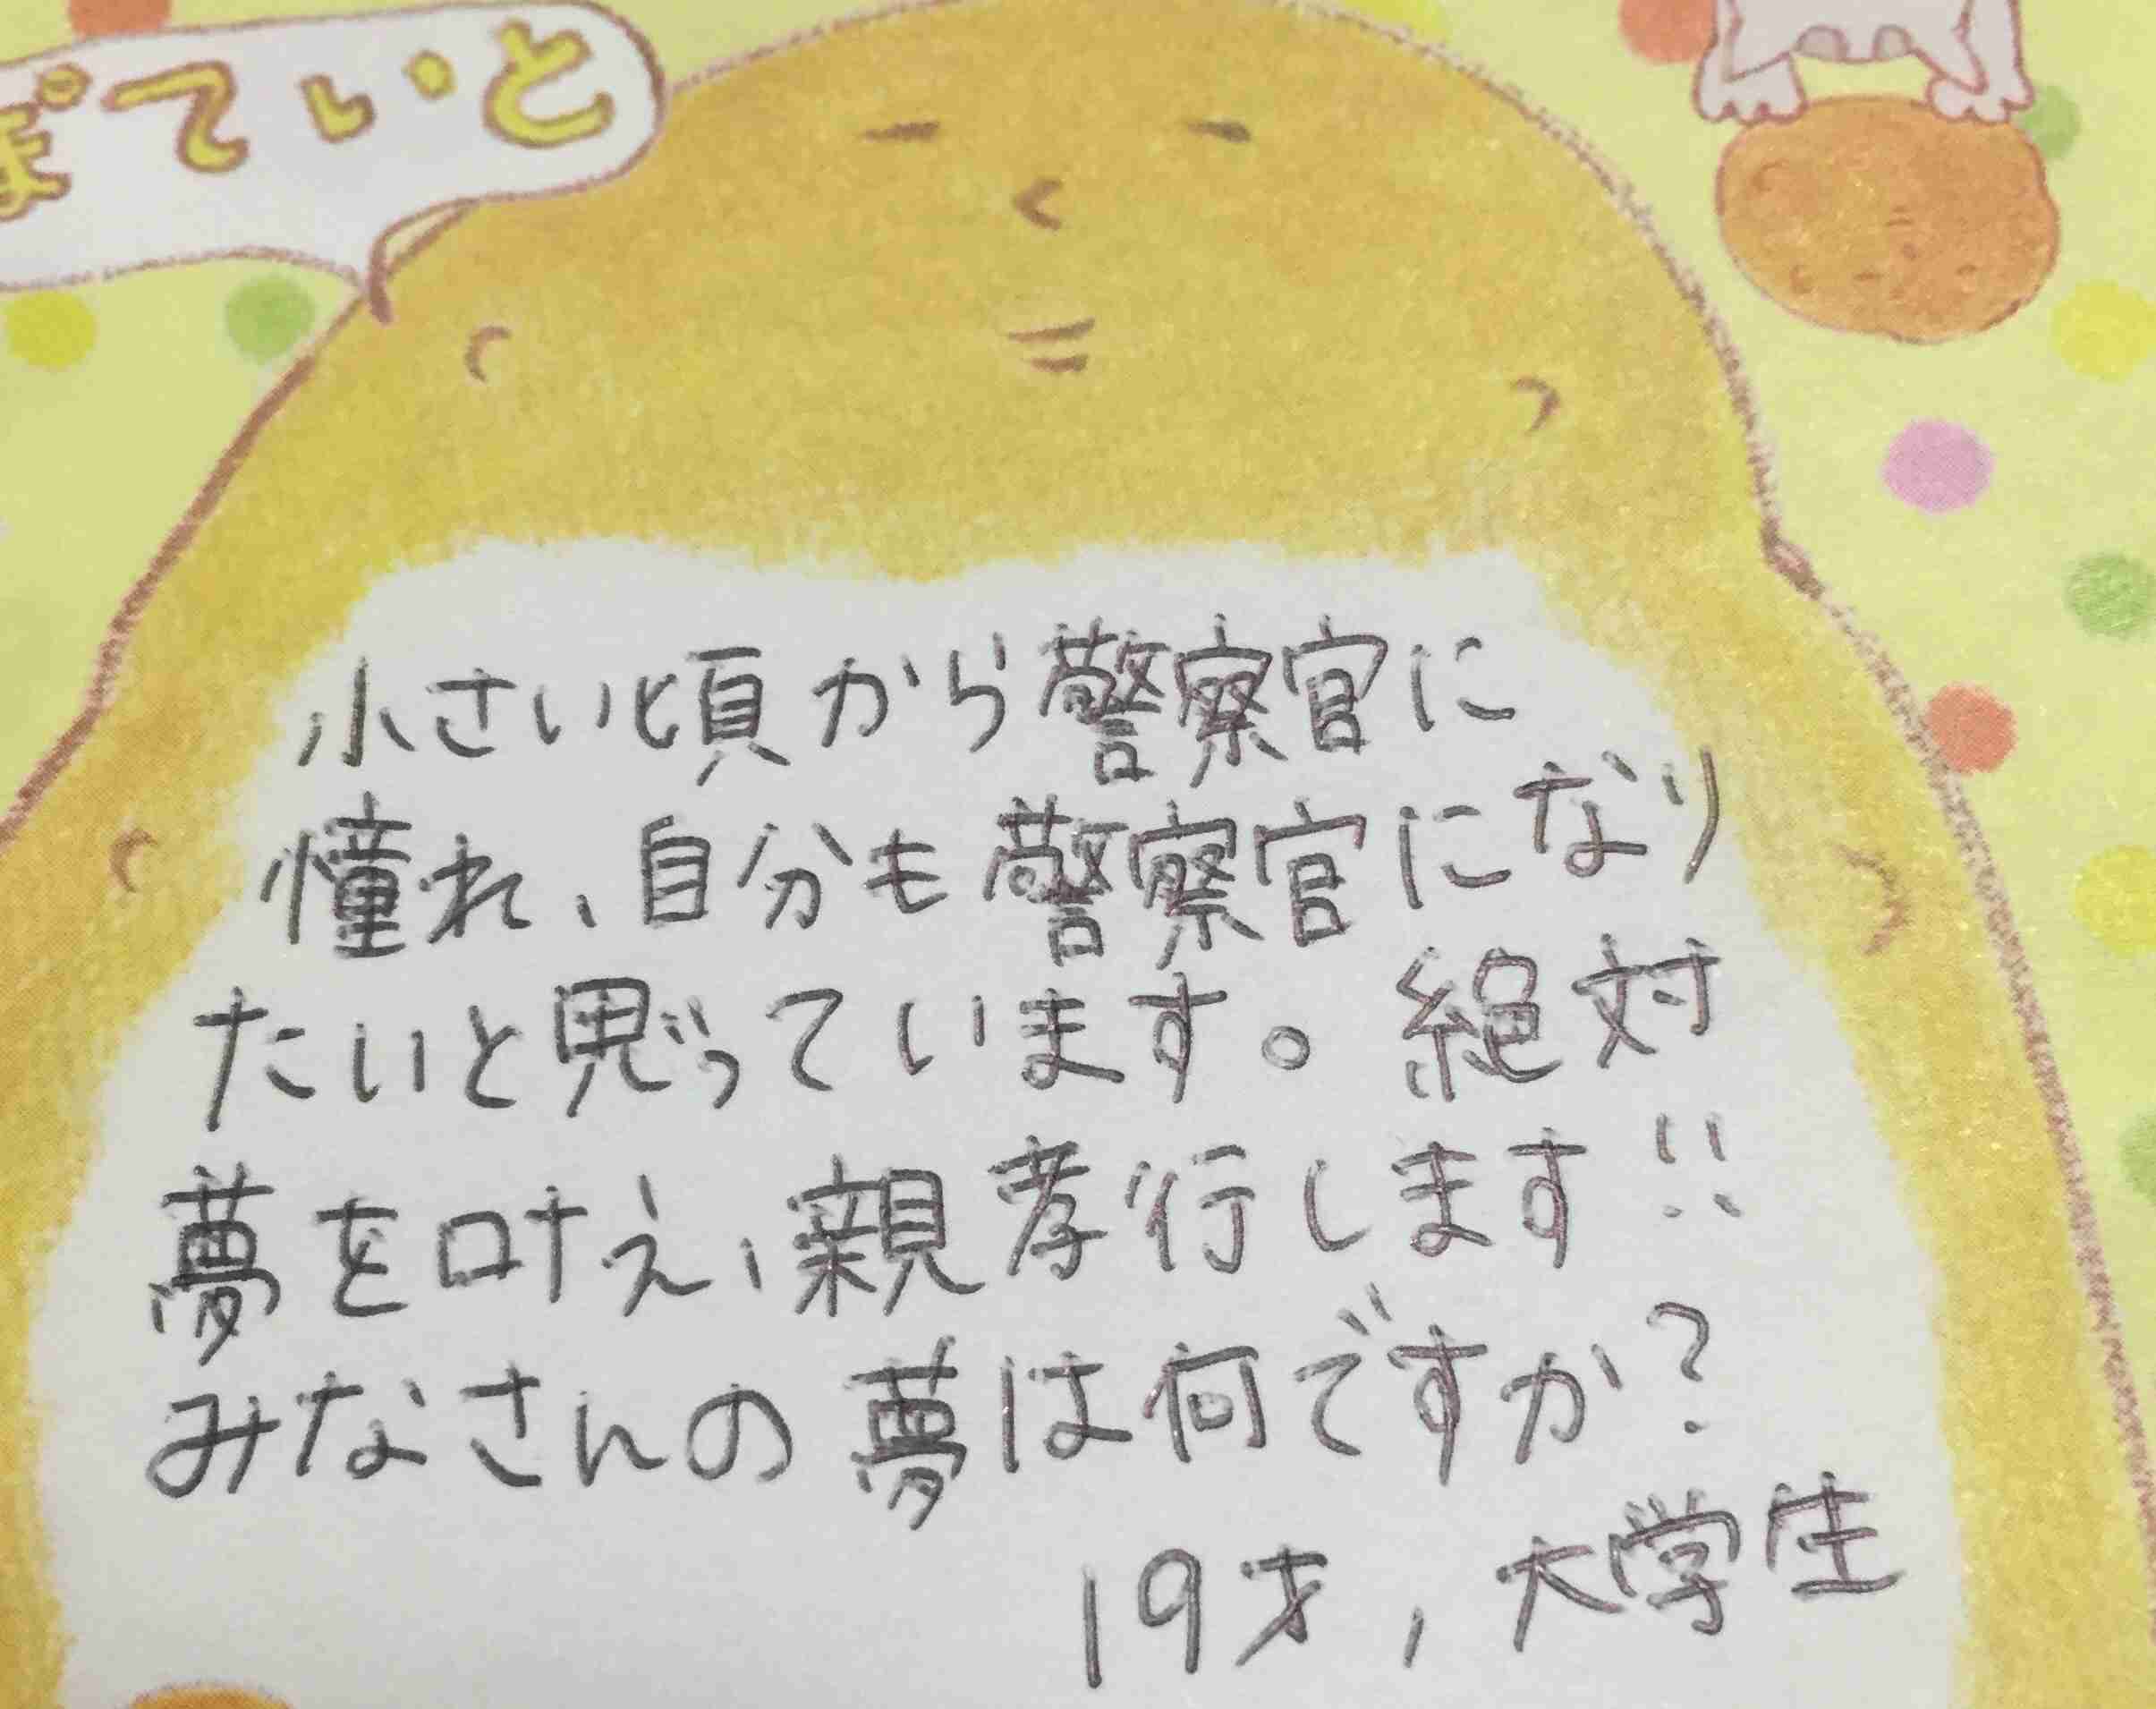 ぽてぃと
小さい頃から警察官に
憧れ、自分も警察官になり
たいと思っています。絶対
夢を叶え、親孝行します!!
みなさんの夢は何ですか?
19才, 大学生